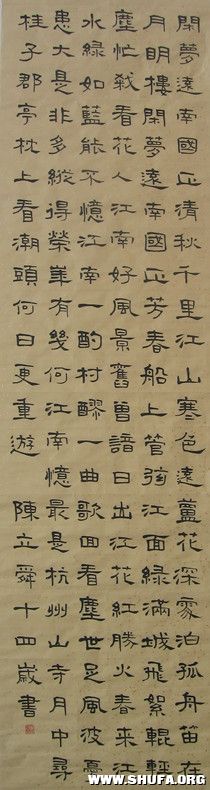 閑夢遠南國正清秋千里江山寒色遠蘆花深處泊孤舟笛在
月明樓閑夢遠南國正芳春船上管弦江面綠滿城飛絮輥輕
塵忙殺看花人江南好風景舊曾諳日出江花紅勝火春來江
水綠如藍能不憶江南一酌村醪一曲歌回看塵世足風波憂
患大是非多縱得榮華有幾何江南憶最是杭州山寺月中尋
桂子郡亭枕上看潮頭何日更重遊 陳立舜十四歲書
WWW.SHUFA.ORG